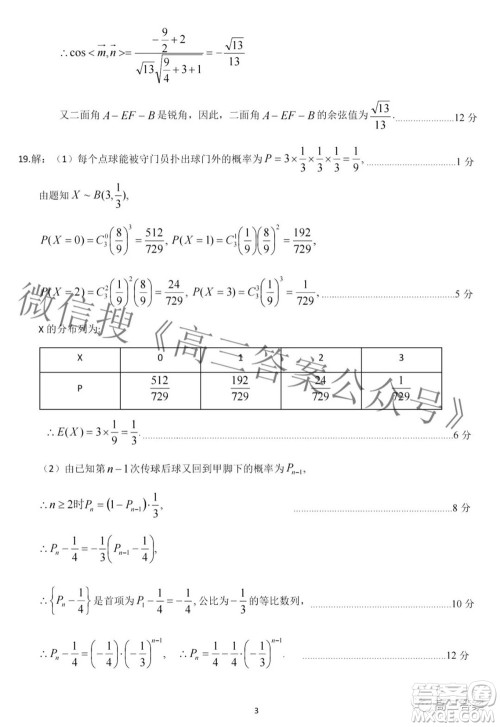 ∴ cos<m⃗,n⃗>= (-9/2+2)/(√13 √(9/4+3+1)) = -√13/13
又二面角 A-EF-B 是锐角，因此，二面角 A-EF-B 的余弦值为 √13/13 ……………12 分
19.解：（1）每个点球能被守门员扑出球门外的概率为 P=3×1/3×1/3×1/3=1/9, ……………1 分
由题知 X~B(3,1/3),
P(X=0)=C₃⁰(8/9)³=512/729, P(X=1)=C₃¹(1/9)(8/9)²=192/729,
P(X=2)=C₃²(1/9)²(8/9)=24/729, P(X=3)=C₃³(1/9)³=1/729 ……………5 分
X 的分布列为:
X 0 1 2 3
P 512/729 192/729 24/729 1/729
∴ E(X)=3×1/9=1/3. ……………6 分
（2）由已知第 n-1 次传球后球又回到甲脚下的概率为 Pₙ₋₁,
∴ n≥2时Pₙ=(1-Pₙ₋₁)·1/3, ……………8 分
∴ Pₙ-1/4=-1/3(Pₙ₋₁-1/4)
∴{Pₙ-1/4}是首项为 P₁-1/4=-1/4,公比为-1/3 的等比数列, ……………10 分
∴ Pₙ-1/4=(-1/4)·(-1/3)ⁿ⁻¹, ∴ Pₙ=1/4-1/4·(-1/3)ⁿ⁻¹ ……………12 分
微信搜《高三答案公众号》
3